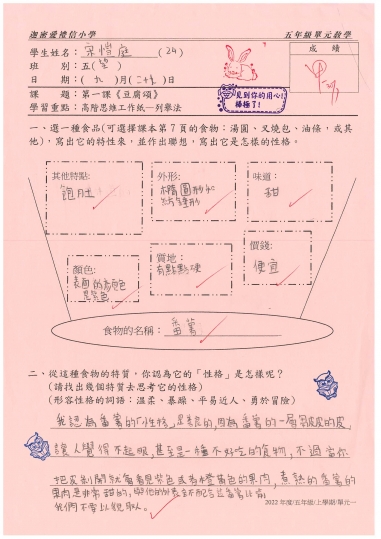 迦密愛禮信小學
五年級單元教學
學生姓名：宋愷庭(24)
成績
班別：五(望)
日期：(九)月(二十)日
見到你的用心！
棒極了！
課題：第一課《豆腐頌》
學習重點：高階思維工作紙—列舉法
一、選一種食品(可選擇課本第7頁的食物：湯圓、叉燒包、油條，或其
他)，寫出它的特性來，並作出聯想，寫出它是怎樣的性格。
其他特點：
飽肚
外形：
橢圓形和
味道：
甜
顏色：
質地：
有點點硬
價錢：
便宜
食物的名稱：番薯
二、從這種食物的特質，你認為它的「性格」是怎樣呢？
(請找出幾個特質去思考它的性格)
(形容性格的詞語：溫柔、暴躁、平易近人、勇於冒險)
我認為番薯的「性格」是 的，因為番薯的一層 的皮，
讓人覺得不起眼，甚至是一種不好吃的食物，不過當你
把皮剝開就會看見紫色或者橙黃色的果肉，煮熟的番薯的
果肉是非常甜的，
我們不要以貌取人。
2022年度/五年級/上學期/單元一